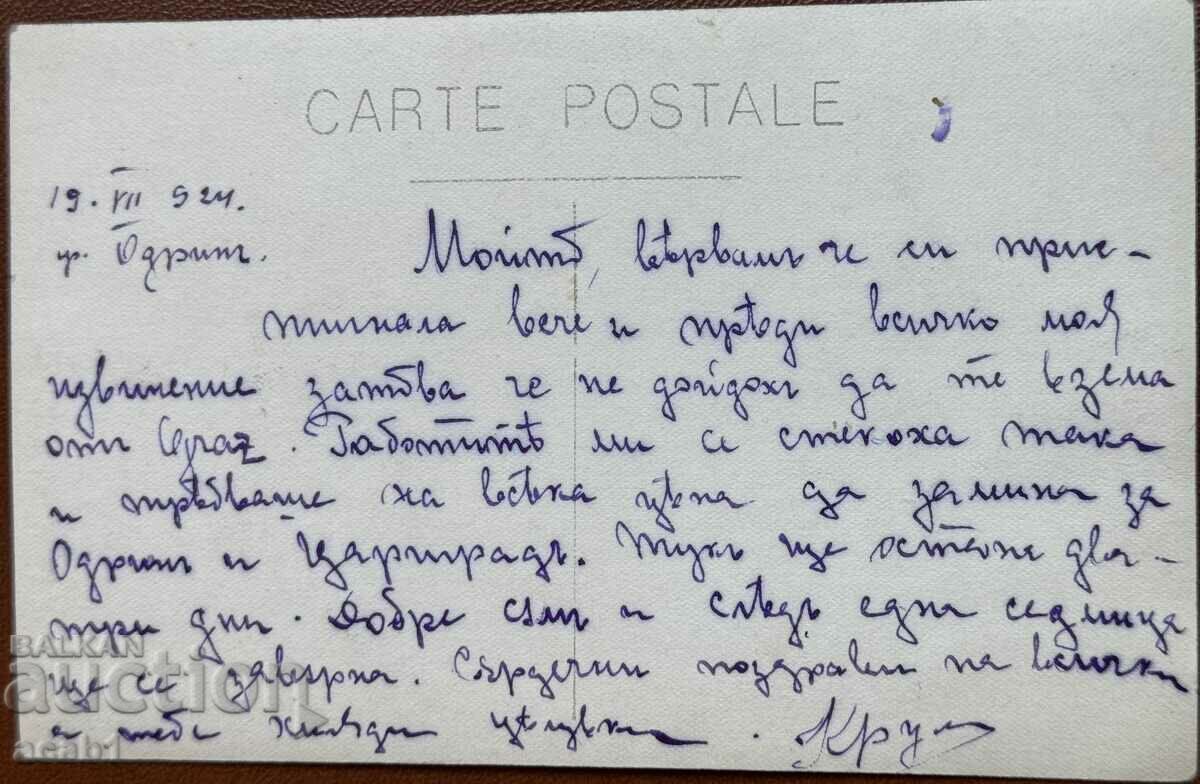 CARTE POSTALE
19. VII 924.
гр. Одринъ.
вѣрвамъ че си прис-
тигнала вече и прѣди всичко моя
извинение затова че не дойдохъ да те взема
отъ Graz. Работитѣ ми се стекоха така
и трѣбваше на всѣка цѣна да замина за
Одринъ и Цариградъ. Тукъ ще остана два-
три дни. Добре съмъ и слѣдъ една седмица
ще се завърна. Сърдечни поздрави на всички
а тебе хиляди цѣлувки. Крум
BALKAN
auction
acab1